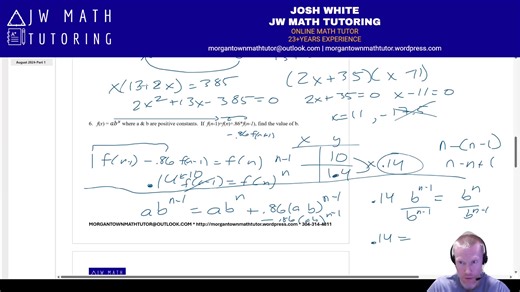 JW MATH
TUTORING
JOSH WHITE
JW MATH TUTORING
ONLINE MATH TUTOR
23+YEARS EXPERIENCE
morgantownmathtutor@outlook.com | morgantownmathtutor.wordpress.com
August 2024 Part 1
x(13+2x)=385
2x²+13x-385=0
(2x+35)(x-11)
2x+35=0 x-11=0
x=11, -17.5
6. f(x) = abˣ where a & b are positive constants. If f(n-1)=f(n)+.86*f(n-1), find the value of b.
-.86f(n-1)
1f(n-1) -.86f(n-1) = f(n)
.14 f(n-1) = f(n)
x y
n-1 10
n 1.4
x .14
n-(n-1)
n-n+1
abⁿ⁻¹ = abⁿ + .86(ab)ⁿ⁻¹
-.86(ab)ⁿ⁻¹
.14 bⁿ⁻¹/bⁿ⁻¹ = bⁿ/bⁿ⁻¹
.14 =
MORGANTOWNMATHTUTOR@OUTLOOK.COM * http://morgantownmathtutor.wordpress.com * 304-314-4811
JW MATH